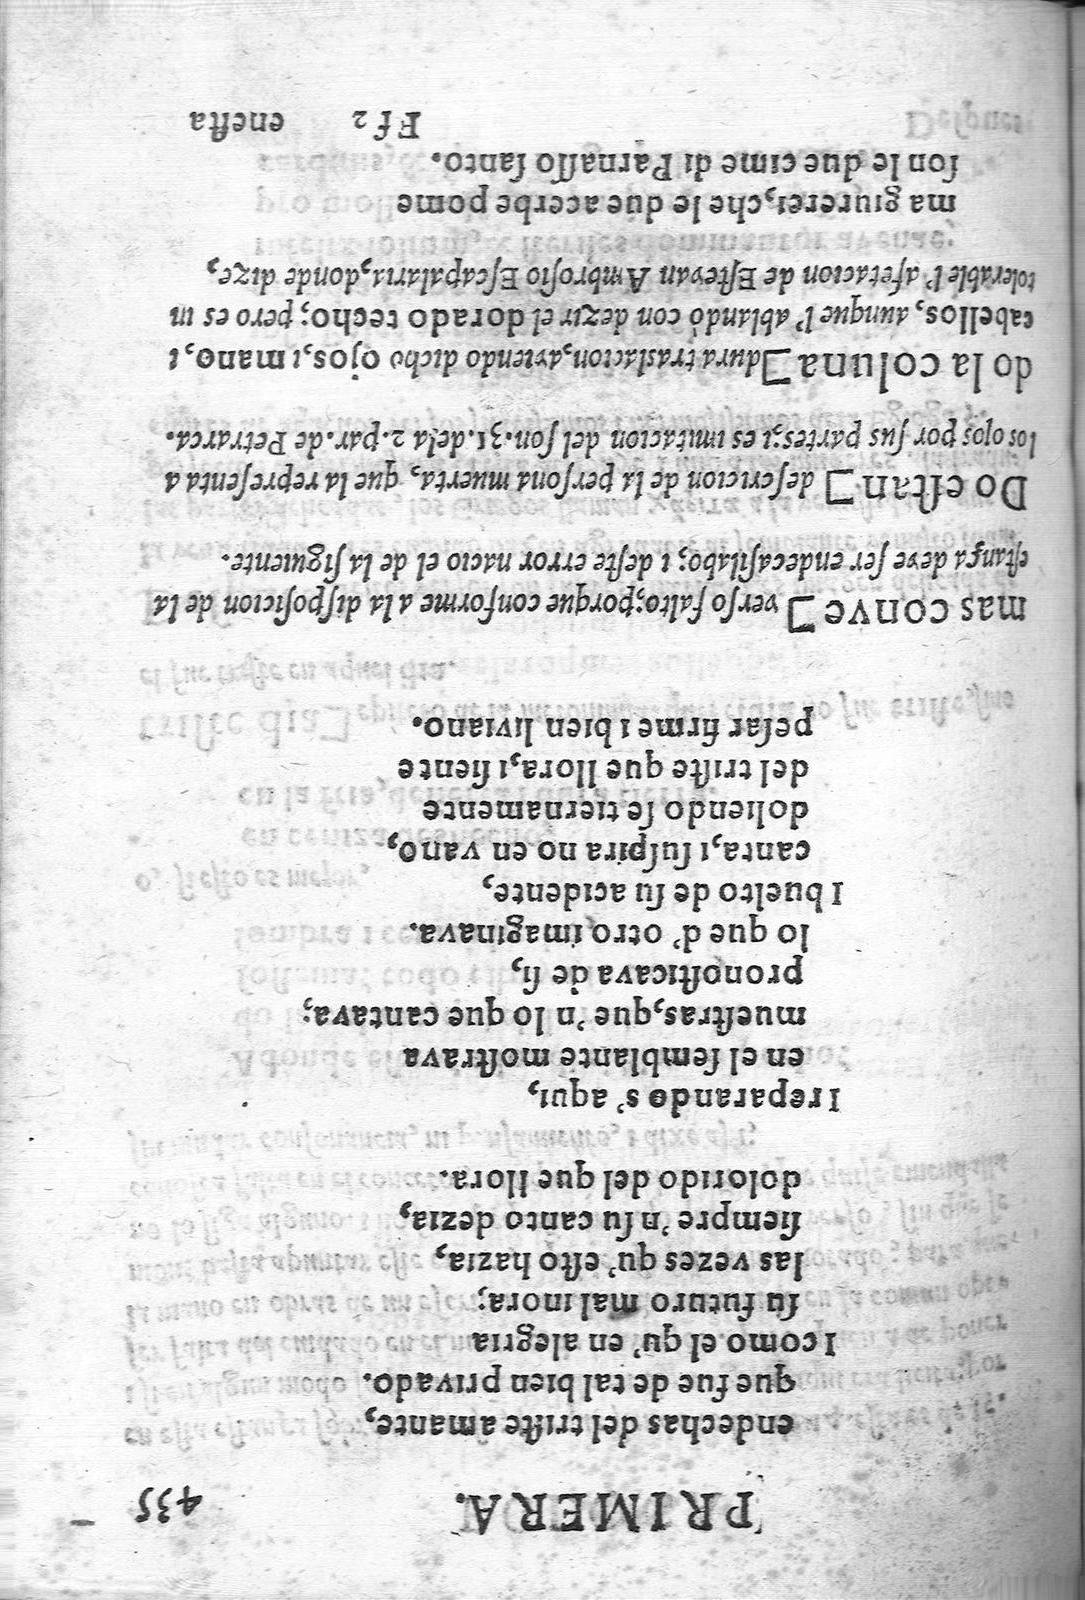 PRIMERA. 435
endechas del triſte amante,
que fue de tal bien privado.
I como el qu' en alegria
ſu futuro mal inora;
las vezes qu' eſto hazia,
ſiempre 'n ſu canto dezia,
dolorido del que llora.
I reparandos' aqui,
en el ſemblante moſtrava
mueſtras, que 'n lo que cantava;
pronoſticava de ſi,
lo que d' otro imaginava.
I buelto de ſu acidente,
canta, i ſuſpira no en vano,
doliendo ſe tiernamente
del triſte que llora, i ſiente
peſar firme i bien liviano.
mas conve] verſo falto; porque conforme a la diſpoſicion de la
eſtança deve ſer endecaſilabo; i deſte error nacio el de la ſiguiente.
Do eſtan] deſcricion de la perſona muerta, que la repreſenta a
los ojos por ſus partes; i es imitacion del ſon. 31. de la 2. par. de Petrarca.
do la coluna] dura traslacion, aviendo dicho ojos, i mano, i
cabellos, aunque l' ablandò con dezir el dorado techo; pero es in
tolerable l' afetacion de Eſtevan Ambroſio Eſcapalaria, donde dize,
ma giurerei, che le due acerbe pome
ſon le due cime di Parnaſſo ſanto.
Ff 2 eneſta